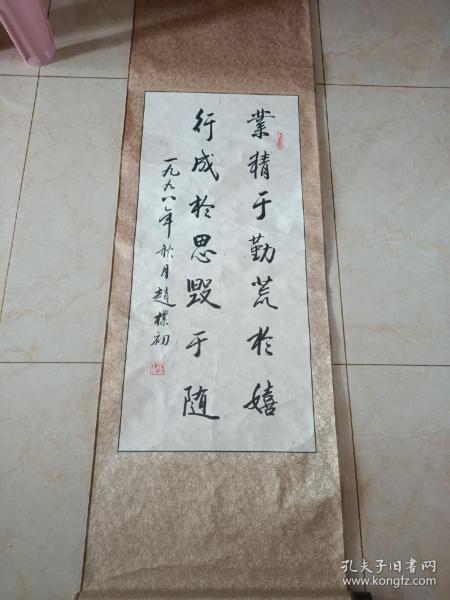 業精于勤荒於嬉
行成於思毁于随
一九九八年秋月趙樸初
孔夫子旧书网
www.kongfz.com